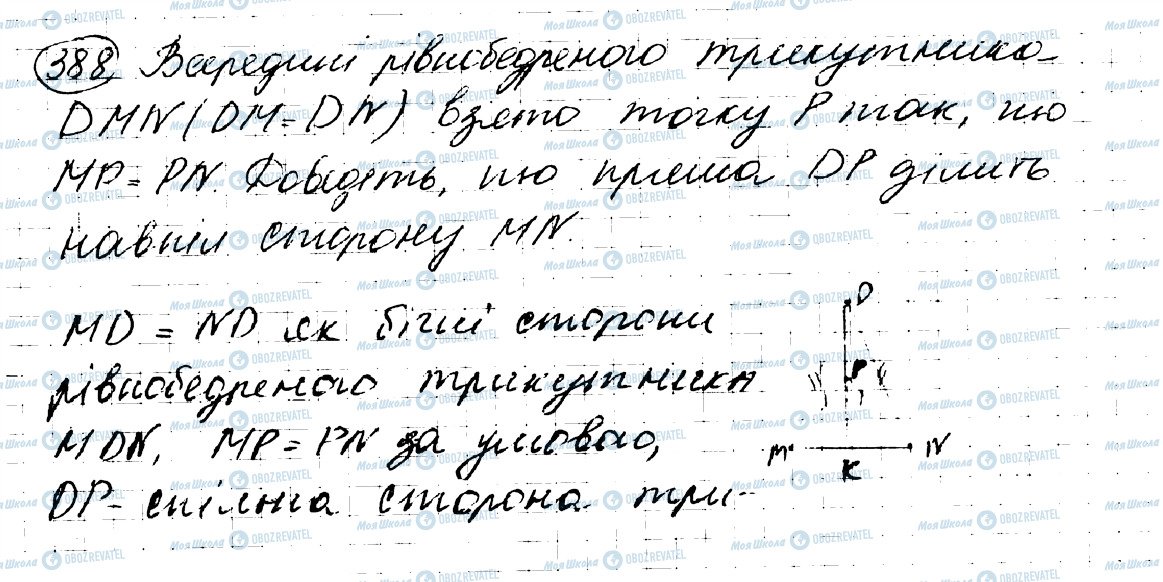 388, Всередині рівнобедреного трикутника
DMN (DM=DN) взято точку P так, що
MP=PN Доведіть, що пряма DP ділить
навпіл сторону MN.
MD = ND як бічні сторони
рівнобедреного трикутника
MDN, MP=PN за умовою,
DP- спільна сторона три-
D
P
M
N
K